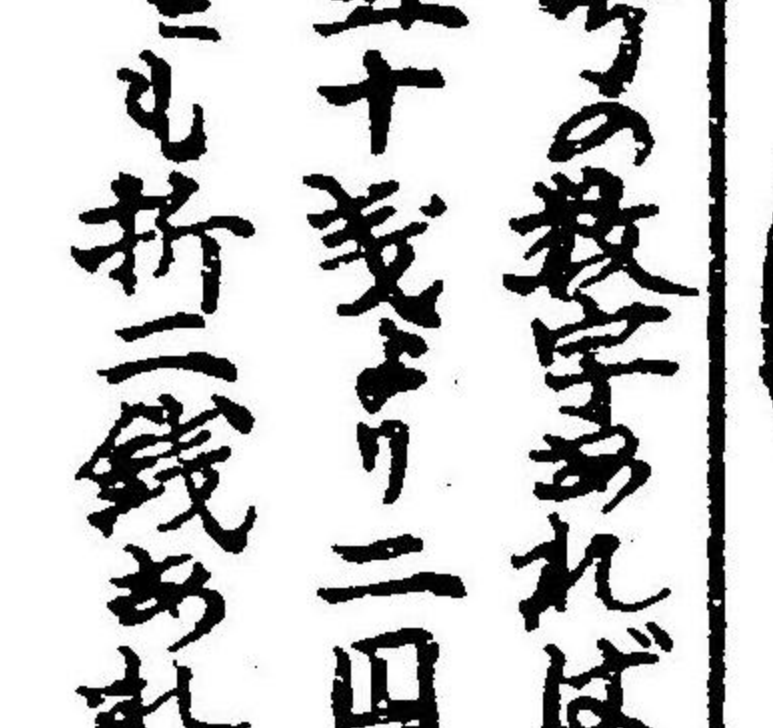 の数字あれば
十戔より二円
も折二銭あれ